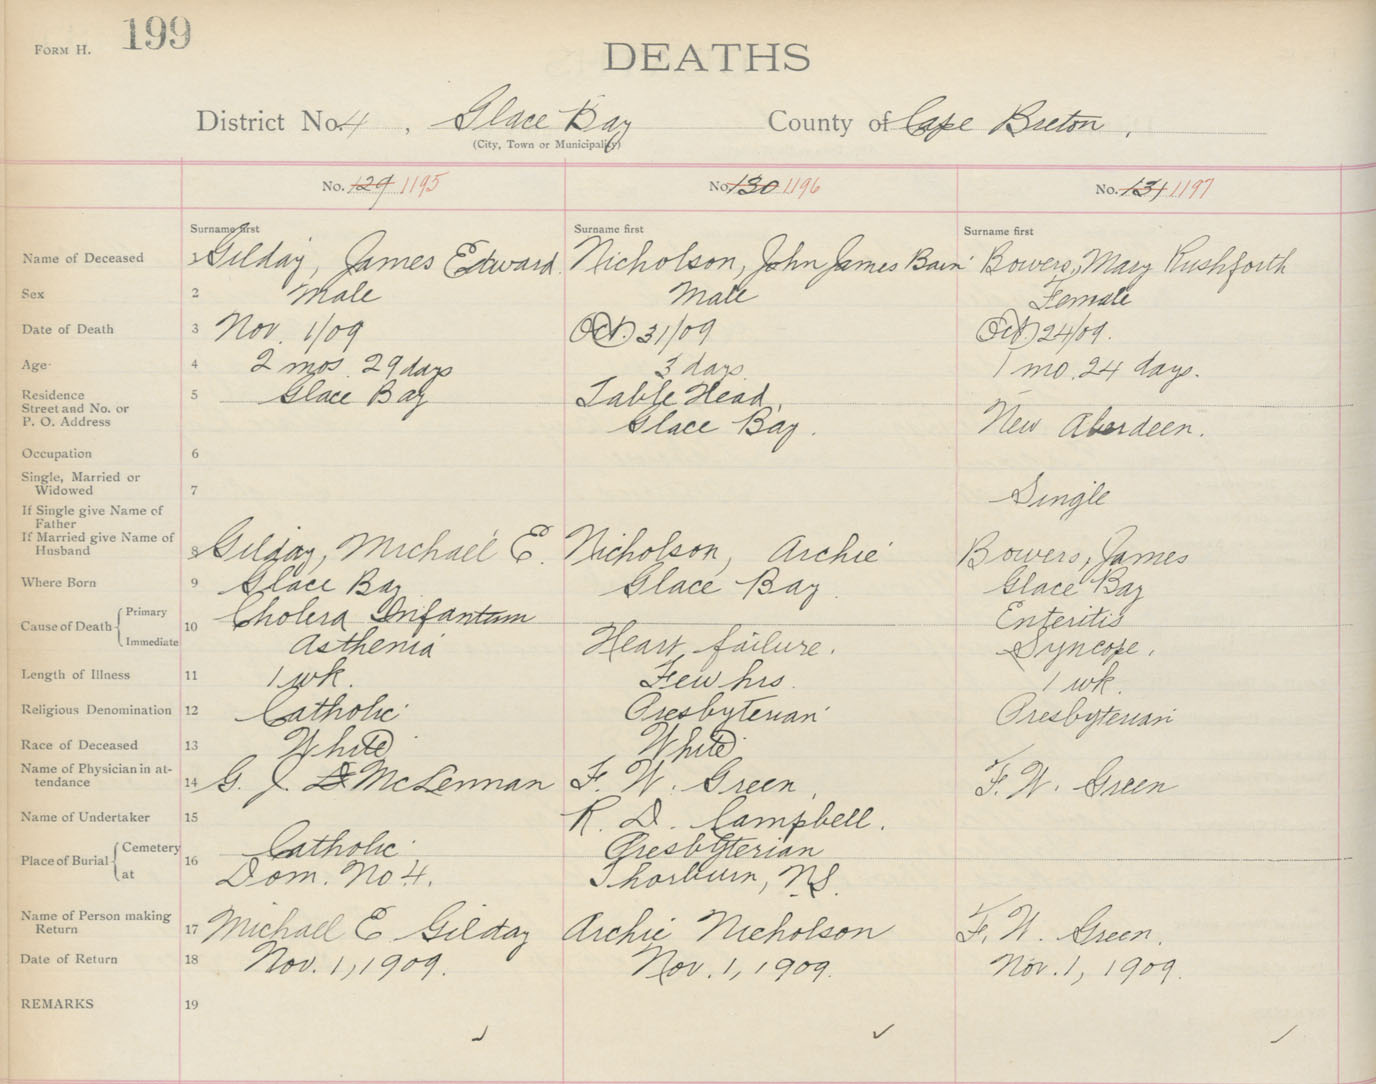 FORM H. 199
DEATHS
District No. 4, Glace Bay County of Cape Breton,
(City, Town or Municipality)
No. 129 1195 No. 130 1196 No. 131 1197
Surname first Surname first Surname first
Name of Deceased 1 Gilday, James Edward. Nicholson, John James Bain Bowers, Mary Rushforth
Sex 2 Male Male Female
Date of Death 3 Nov. 1/09 Oct. 31/09 Oct. 24/09.
Age 4 2 mos. 29 days 3 days 1 mo. 24 days.
Residence 5 Glace Bay Table Head,
Street and No. or
P. O. Address Glace Bay. New Aberdeen.
Occupation 6
Single, Married or
Widowed 7 Single
If Single give Name of
Father
If Married give Name of
Husband 8 Gilday, Michael E. Nicholson, Archie Bowers, James
Where Born 9 Glace Bay Glace Bay. Glace Bay
Cause of Death { Primary 10 Cholera Infantum Enteritis
Immediate Asthenia Heart failure. Syncope.
Length of Illness 11 1 wk. Few hrs. 1 wk.
Religious Denomination 12 Catholic Presbyterian Presbyterian
Race of Deceased 13 White White
Name of Physician in at-
tendance 14 G. J. McLennan F. W. Green, F. W. Green
Name of Undertaker 15 R. D. Campbell.
Place of Burial { Cemetery 16 Catholic Presbyterian
at Dom. No 4. Thorburn, N.S.
Name of Person making
Return 17 Michael E Gilday Archie Nicholson F. W. Green.
Date of Return 18 Nov. 1, 1909. Nov. 1, 1909. Nov. 1, 1909.
REMARKS 19